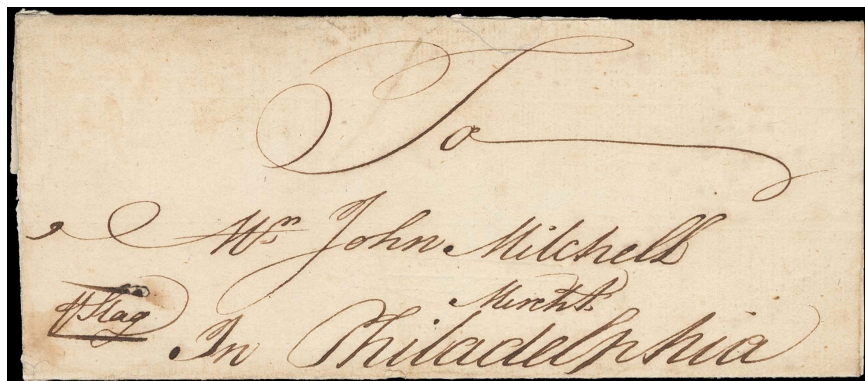 To
Mr John Mitchell
Mercht
In Philadelphia